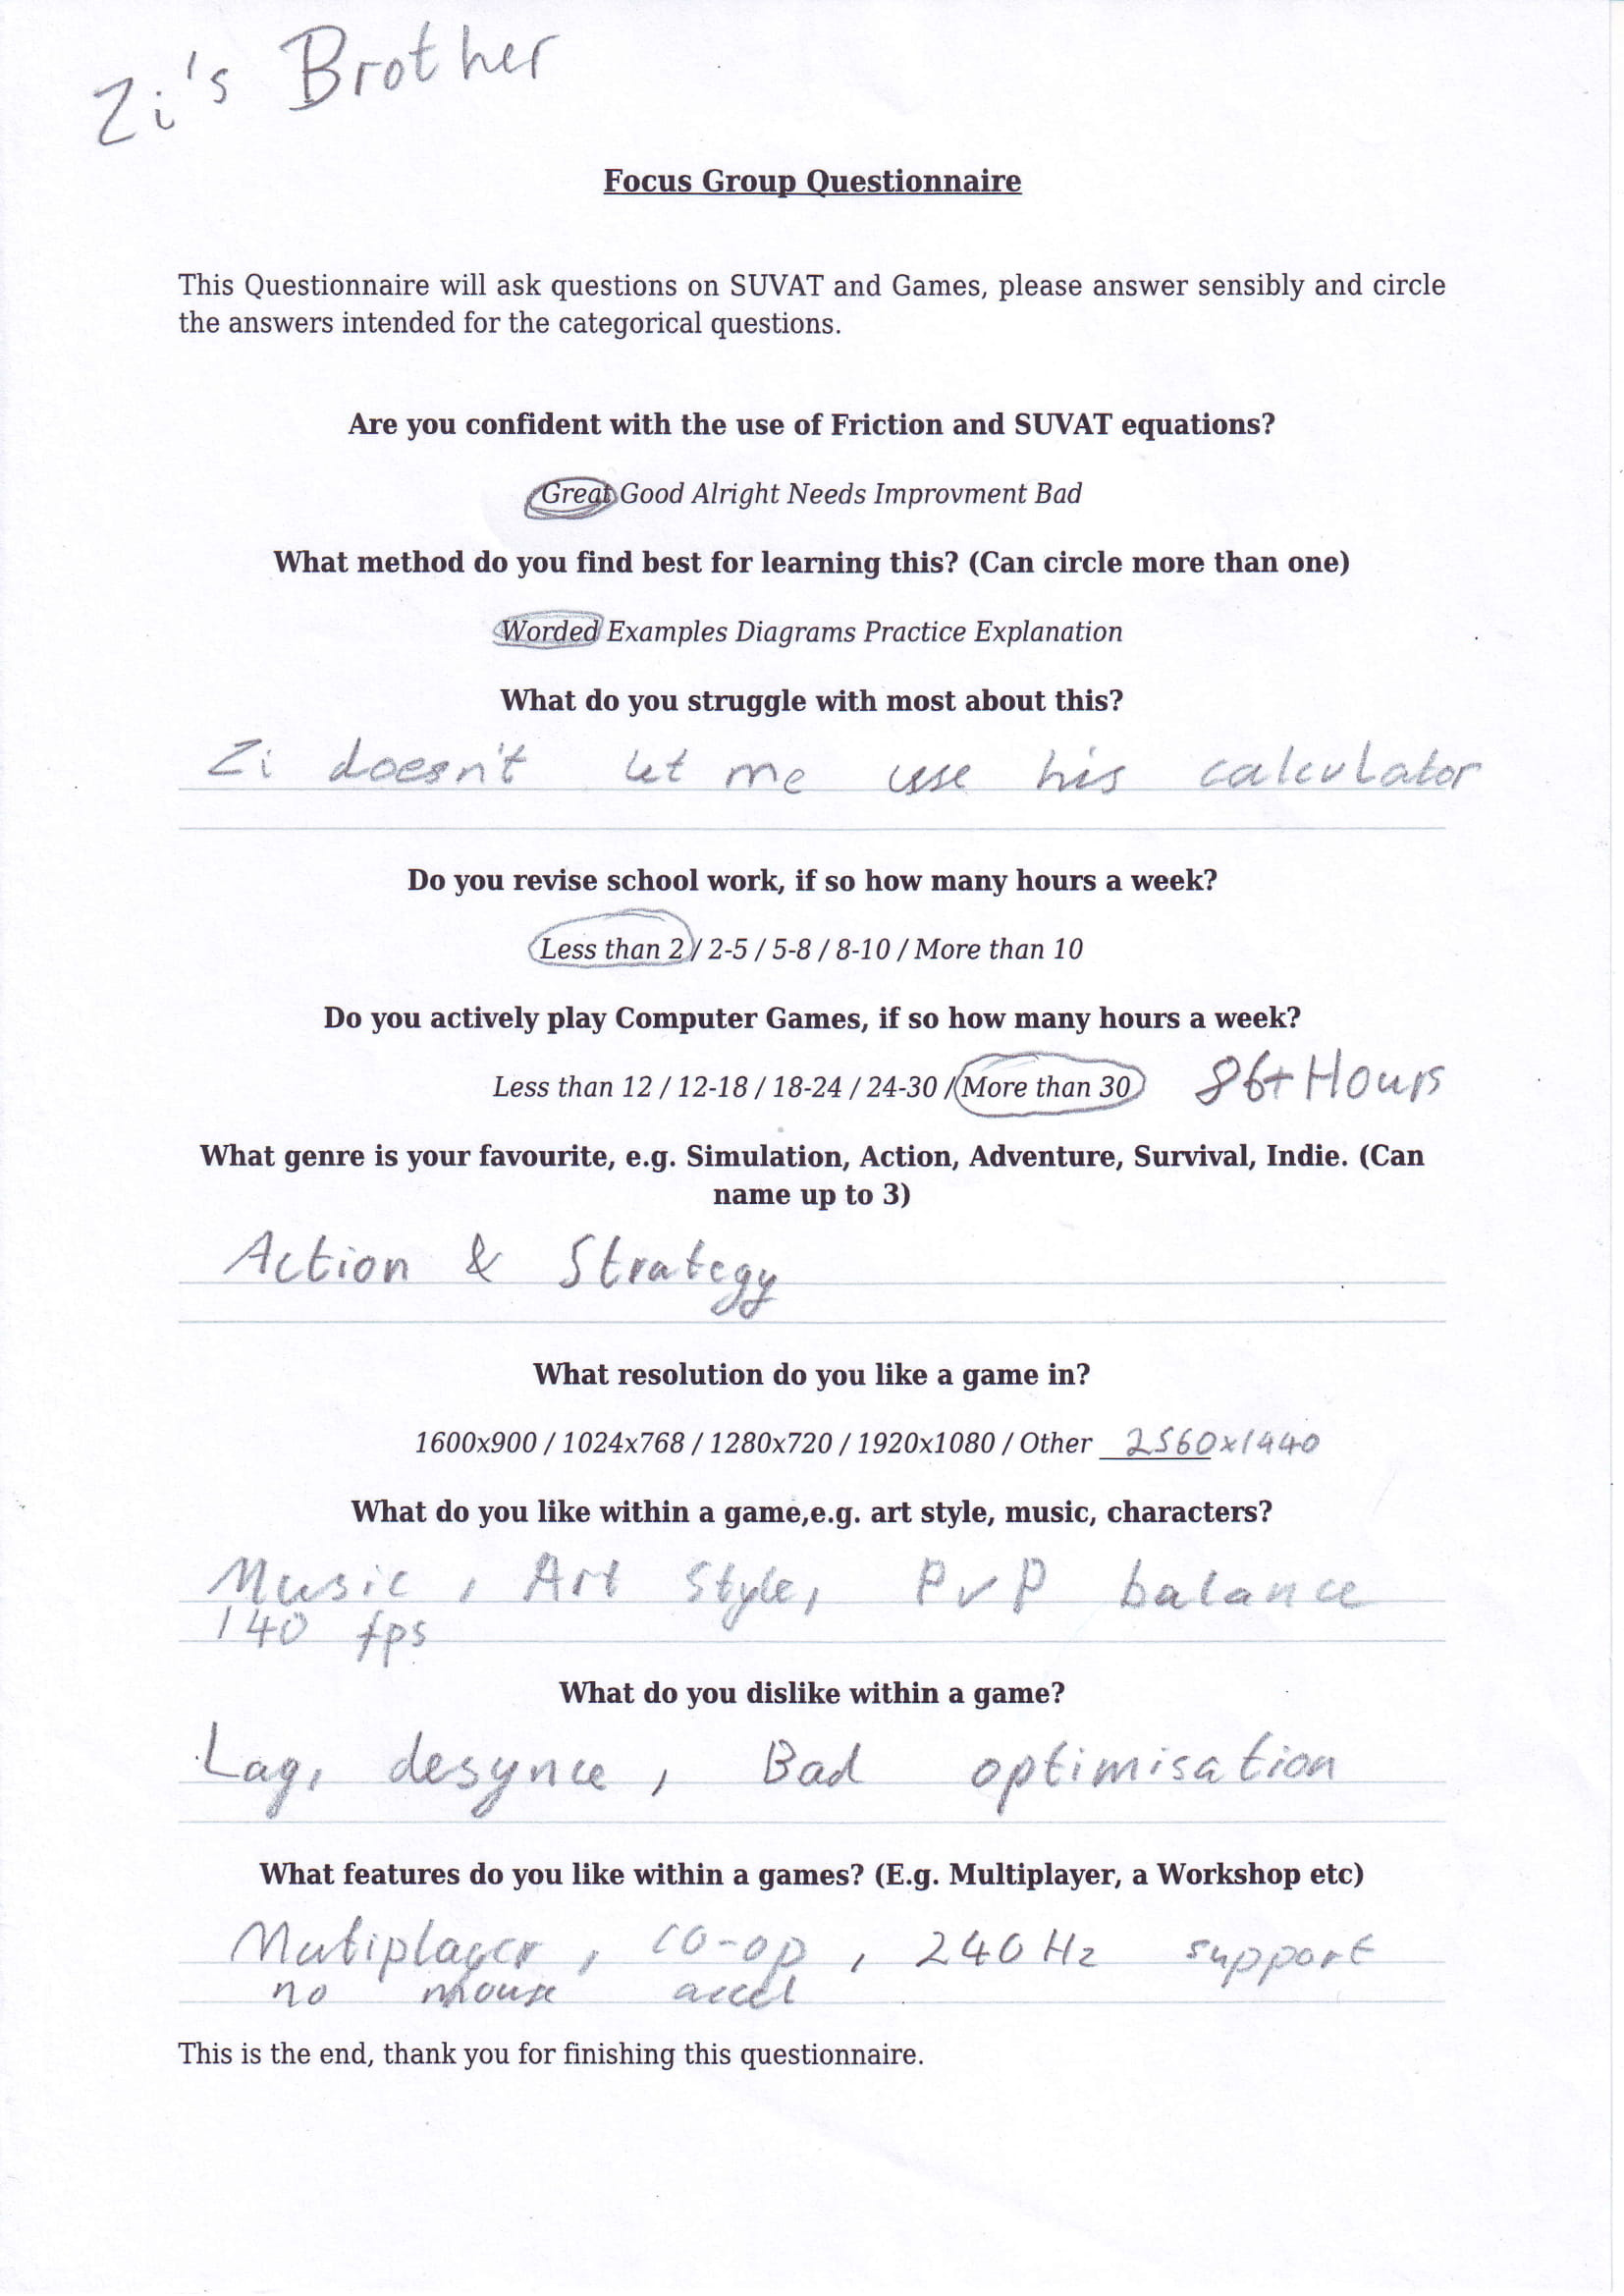 Zi's Brother
Focus Group Questionnaire
This Questionnaire will ask questions on SUVAT and Games, please answer sensibly and circle
the answers intended for the categorical questions.
Are you confident with the use of Friction and SUVAT equations?
Great Good Alright Needs Improvment Bad
What method do you find best for learning this? (Can circle more than one)
Worded Examples Diagrams Practice Explanation
What do you struggle with most about this?
Zi doesn't let me use his calculator
Do you revise school work, if so how many hours a week?
Less than 2 / 2-5 / 5-8 / 8-10 / More than 10
Do you actively play Computer Games, if so how many hours a week?
Less than 12 / 12-18 / 18-24 / 24-30 / More than 30 86+ Hours
What genre is your favourite, e.g. Simulation, Action, Adventure, Survival, Indie. (Can
name up to 3)
Action & Strategy
What resolution do you like a game in?
1600x900 / 1024x768 / 1280x720 / 1920x1080 / Other 2560x1440
What do you like within a game,e.g. art style, music, characters?
Music, Art Style, PvP balance
140 fps
What do you dislike within a game?
Lag, desynce, Bad optimisation
What features do you like within a games? (E.g. Multiplayer, a Workshop etc)
Mutiplayer, co-op, 240Hz support
no mouse accel
This is the end, thank you for finishing this questionnaire.